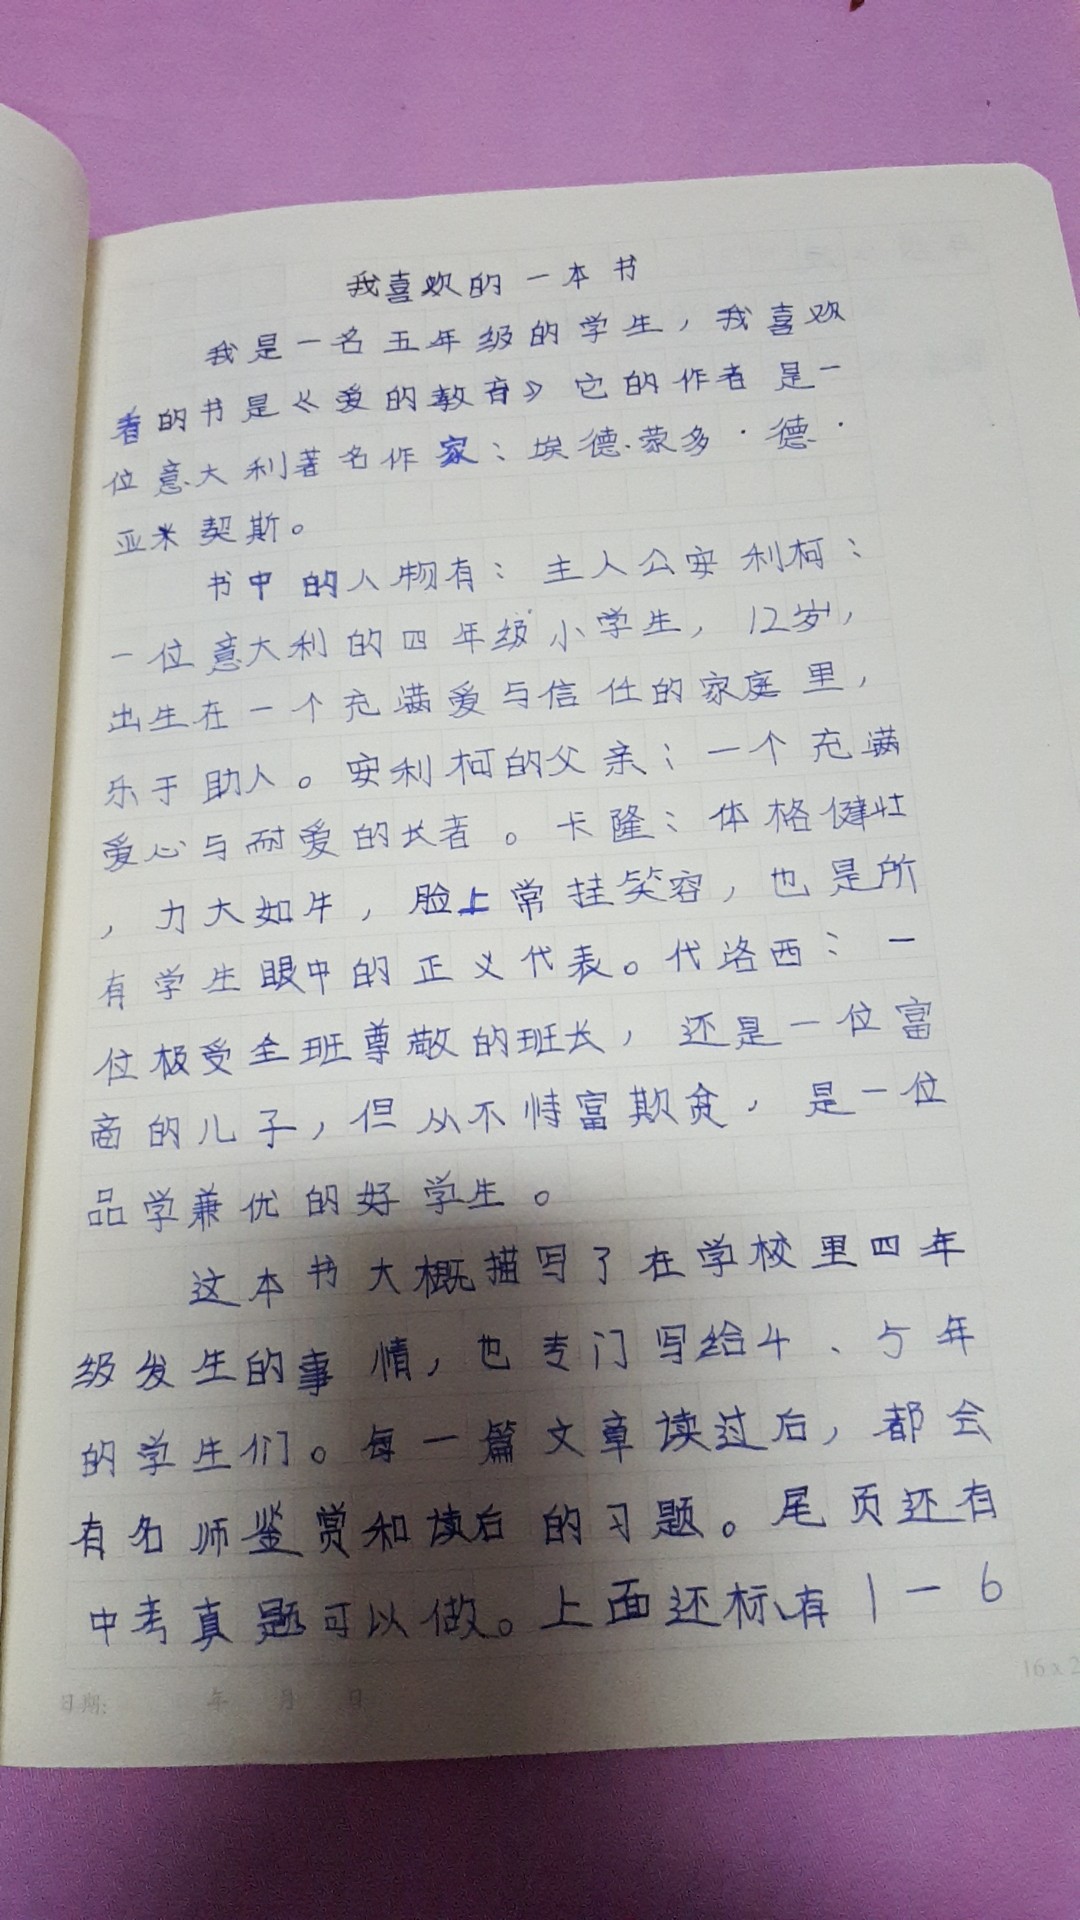 我喜欢的一本书
我是一名五年级的学生，我喜欢
看的书是《爱的教育》它的作者是一
位意大利著名作家：埃德·蒙多·德·
亚米契斯。
书中的人物有：主人公安利柯：
一位意大利的四年级小学生，12岁，
出生在一个充满爱与信任的家庭里，
乐于助人。安利柯的父亲：一个充满
爱心与耐爱的长者。卡隆：体格健壮
，力大如牛，脸上常挂笑容，也是所
有学生眼中的正义代表。代洛西：一
位极受全班尊敬的班长，还是一位富
商的儿子，但从不恃富欺贫，是一位
品学兼优的好学生。
这本书大概描写了在学校里四年
级发生的事情，也专门写给4、5年
的学生们。每一篇文章读过后，都会
有名师鉴赏和读后的习题。尾页还有
中考真题可以做。上面还标有1一6
日期： 年 月 日